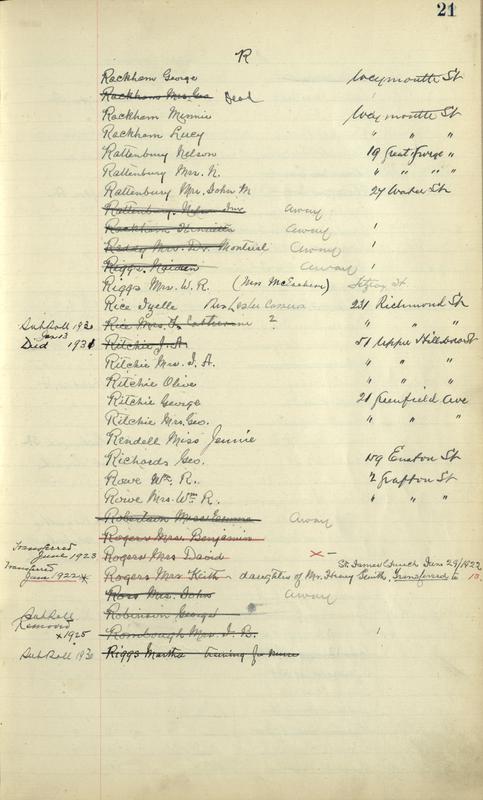 21
R
Rackham George Weymouth St
Rackham Mrs. Geo Dead
Rackham Minnie Weymouth St
Rackham Lucy " " "
Rattenbury Nelson 19 Great George "
Rattenbury Mrs. N. " " " "
Rattenbury Mrs. John M 27 Water St
Rattenbury. Nelson Away
Rackham Henrietta Away
Reddy Mrs. Dr. Montreal Away
Riggs. Away
Riggs Mrs. W. R. (Mrs McEachern) Fitzroy St.
Rice Lester 231 Richmond St
SubRoll 193 Rice Mrs. ? " " "
Jan 13
Died 1931 Ritchie J. A. 51 Upper Hillsboro St
Ritchie Mrs. J. A. " " "
Ritchie Olive " " "
Ritchie George 21 Greenfield Ave
Ritchie Mrs. Geo. " " "
Rendell Miss Jennie
Richards Geo. 159 Euston St
Rowe Wm. R. 2 Grafton St
Rowe Mrs. Wm R. " " "
Robertson Miss Away
Rogers Mrs. Benjamin
Transferred
June 1923 Rogers Mrs David x –
St. James Church June 29/1922
Transferred
June 1922 x Rogers Mrs Keith – daughter of Mr. Henry Smith, Transferred to
Ross Mrs. John Away
SubRoll Robinson George
Removed
x 1925 Rombough Mrs. J. B.
SubRoll 193 Riggs Martha training for nurse